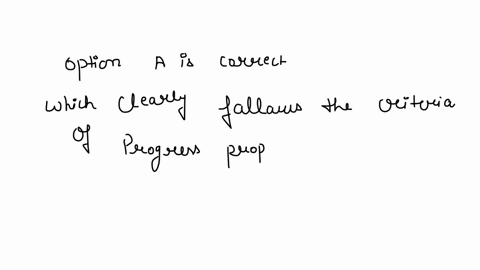 option A is correct
which clearly fallows the criteria
of Progress prop